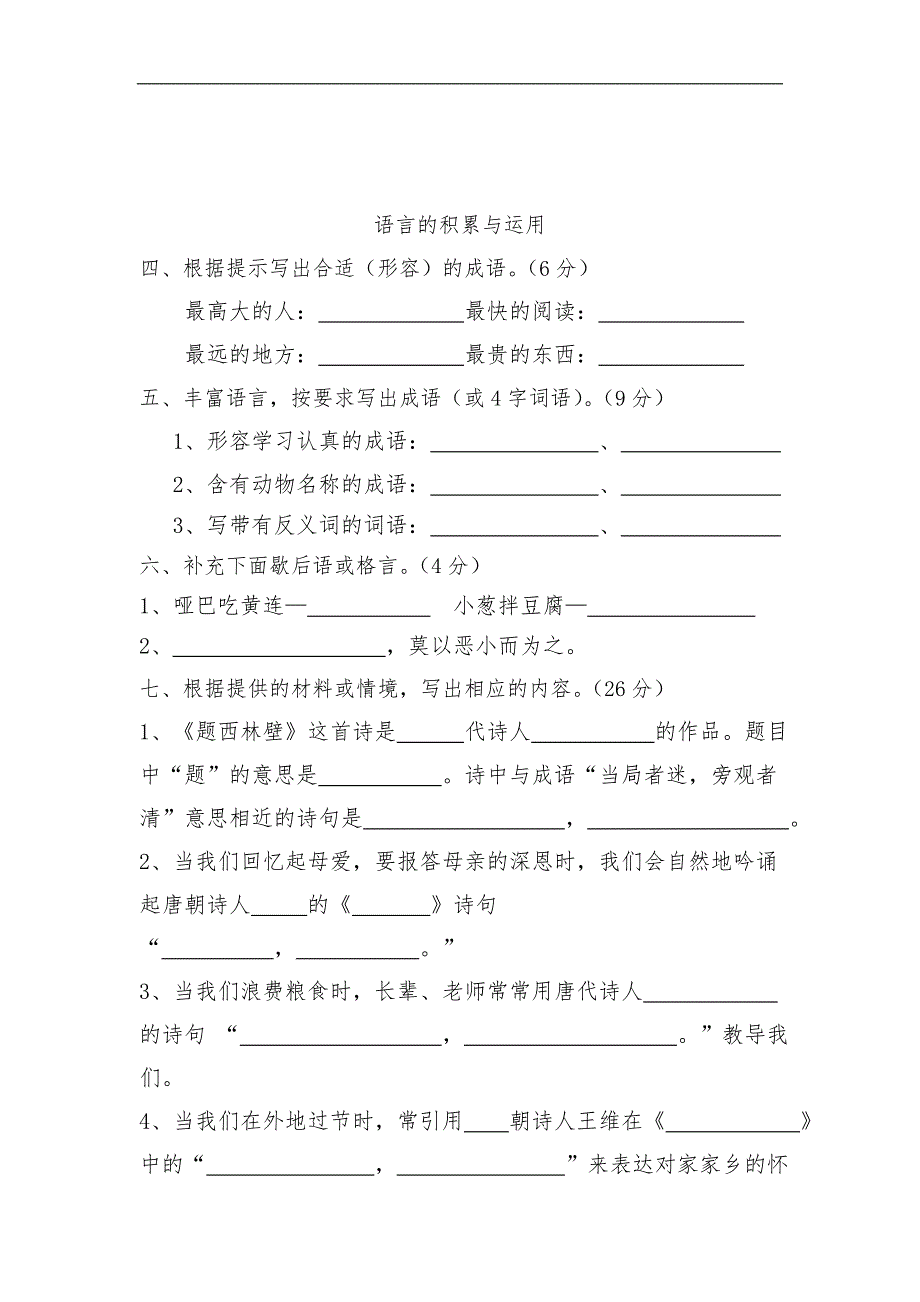 语言的积累与运用
四、根据提示写出合适（形容）的成语。（6分）
最高大的人：____________最快的阅读：____________
最远的地方：____________最贵的东西：____________
五、丰富语言，按要求写出成语（或4字词语）。（9分）
1、形容学习认真的成语：______________、______________
2、含有动物名称的成语：______________、______________
3、写带有反义词的词语：______________、______________
六、补充下面歇后语或格言。（4分）
1、哑巴吃黄连—__________ 小葱拌豆腐—______________
2、__________________，莫以恶小而为之。
七、根据提供的材料或情境，写出相应的内容。（26分）
1、《题西林壁》这首诗是______代诗人__________的作品。题目
中“题”的意思是__________。诗中与成语“当局者迷，旁观者
清”意思相近的诗句是________________，________________。
2、当我们回忆起母爱，要报答母亲的深恩时，我们会自然地吟诵
起唐朝诗人_____的《_______》诗句
“_________，__________。”
3、当我们浪费粮食时，长辈、老师常常用唐代诗人___________
的诗句 “________________，_________________。”教导我
们。
4、当我们在外地过节时，常引用____朝诗人王维在《___________》
中的“_____________，_____________”来表达对家家乡的怀